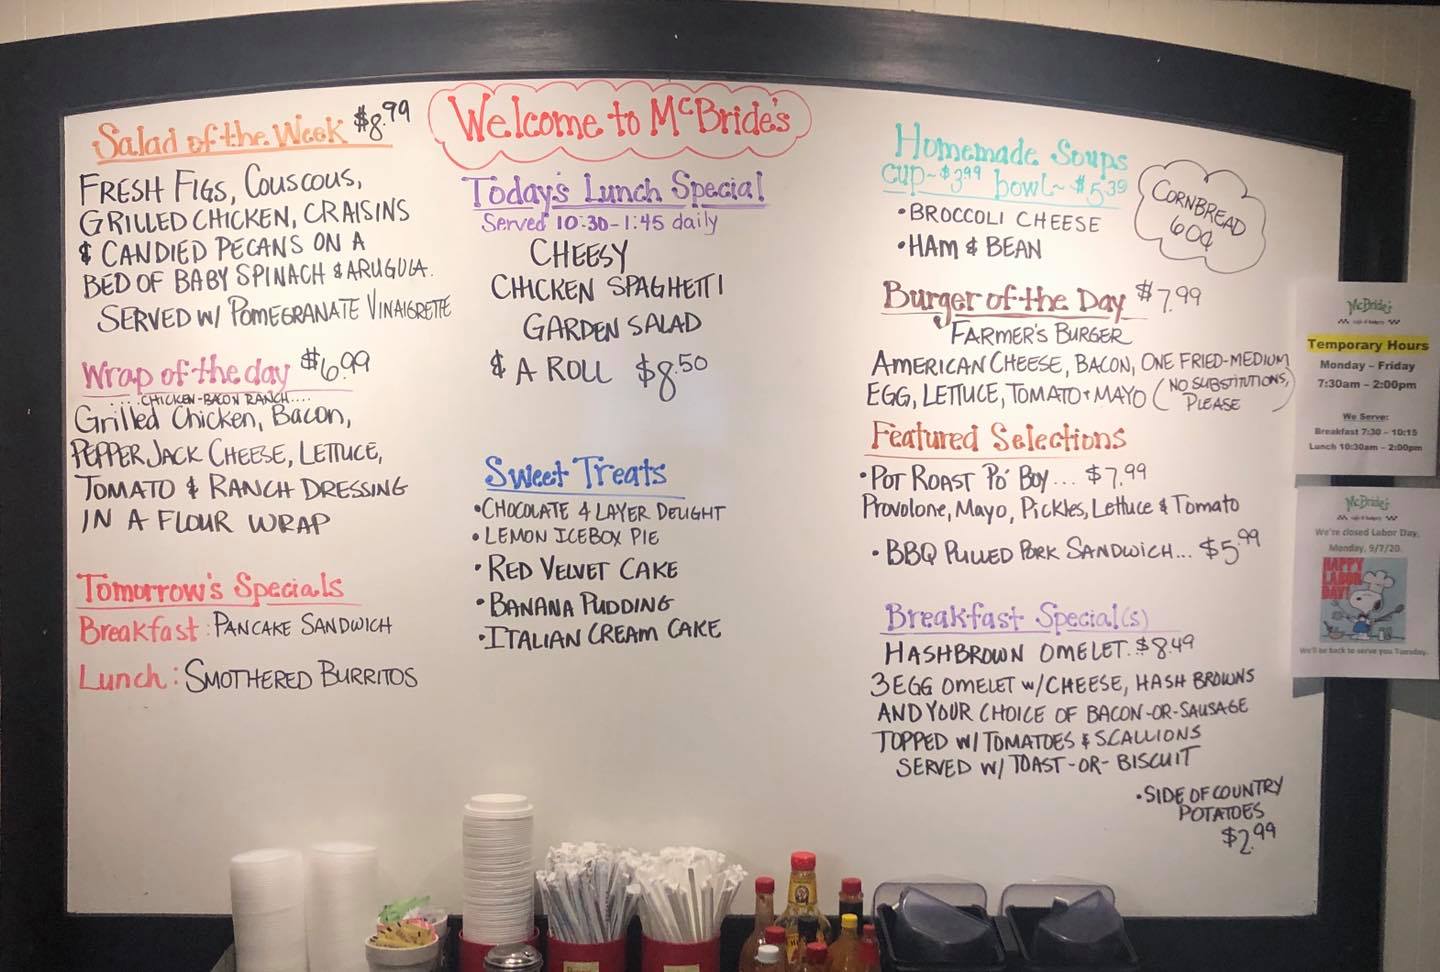 Welcome to McBride's
Salad of the Week $8.99
FRESH FIGS, COUSCOUS,
GRILLED CHICKEN, CRAISINS
& CANDIED PECANS ON A
BED OF BABY SPINACH & ARUGULA.
SERVED W/ POMEGRANATE VINAIGRETTE
Wrap of the day $6.99
....CHICKEN-BACON RANCH....
Grilled Chicken, Bacon,
PEPPER JACK CHEESE, LETTUCE,
TOMATO & RANCH DRESSING
IN A FLOUR WRAP
Tomorrow's Specials
Breakfast: PANCAKE SANDWICH
Lunch: SMOTHERED BURRITOS
Today's Lunch Special
Served 10:30-1:45 daily
CHEESY
CHICKEN SPAGHETTI
GARDEN SALAD
& A ROLL $8.50
Sweet Treats
•CHOCOLATE 4 LAYER DELIGHT
•LEMON ICEBOX PIE
•RED VELVET CAKE
•BANANA PUDDING
•ITALIAN CREAM CAKE
Homemade Soups
cup~$3.99 bowl~$5.39
•BROCCOLI CHEESE
•HAM & BEAN
CORNBREAD
60¢
Burger of the Day $7.99
FARMER'S BURGER
AMERICAN CHEESE, BACON, ONE FRIED-MEDIUM
EGG, LETTUCE, TOMATO + MAYO (NO SUBSTITUTIONS,
PLEASE)
Featured Selections
•POT ROAST PO' BOY... $7.99
Provolone, Mayo, Pickles, Lettuce & Tomato
•BBQ PULLED PORK SANDWICH... $5.99
Breakfast Special(s)
HASHBROWN OMELET. $8.49
3 EGG OMELET W/CHEESE, HASH BROWNS
AND YOUR CHOICE OF BACON-OR-SAUSAGE
TOPPED W/ TOMATOES & SCALLIONS
SERVED W/ TOAST-OR-BISCUIT
•SIDE OF COUNTRY
POTATOES
$2.99
McBride's
Temporary Hours
Monday – Friday
7:30am – 2:00pm
We Serve:
Breakfast 7:30 – 10:15
Lunch 10:30am – 2:00pm
McBride's
We're closed Labor Day,
Monday, 9/7/20.
HAPPY
LABOR
DAY!
We'll be back to serve you Tuesday.